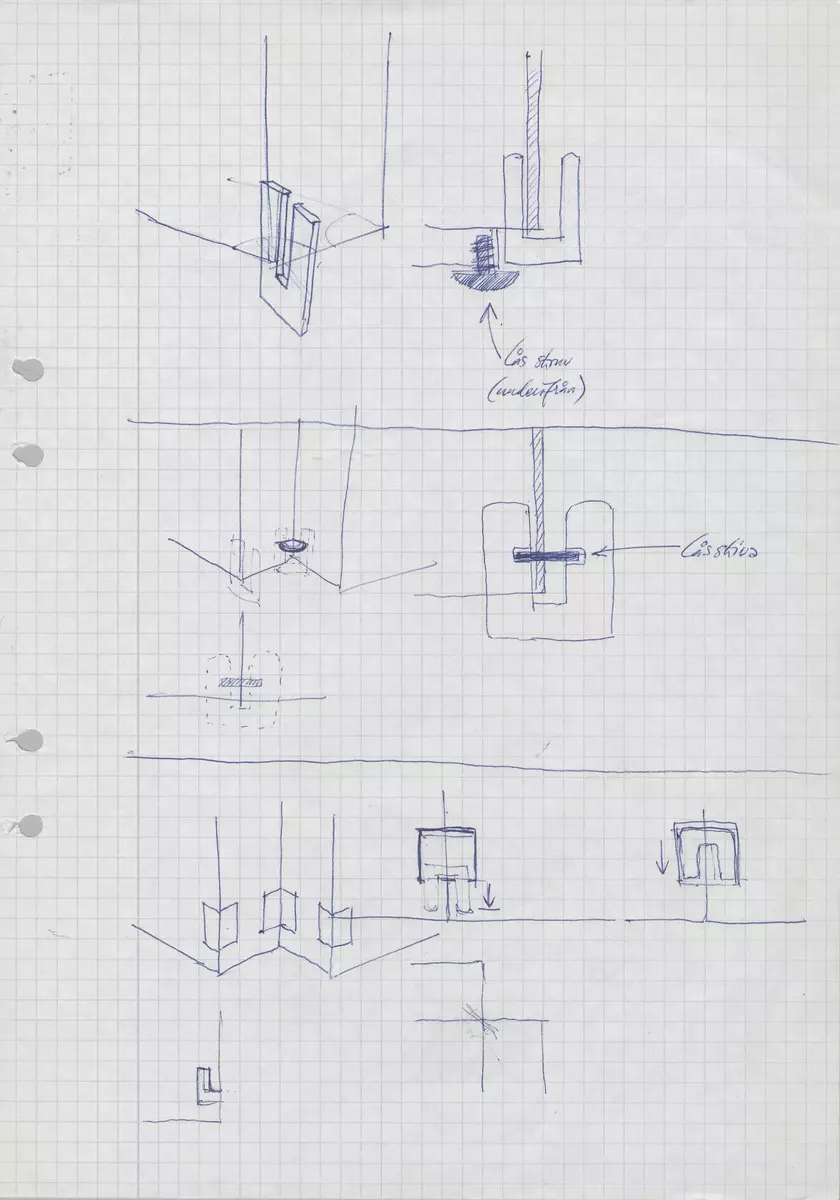 Lås skruv
(underifrån)
Låsskiva